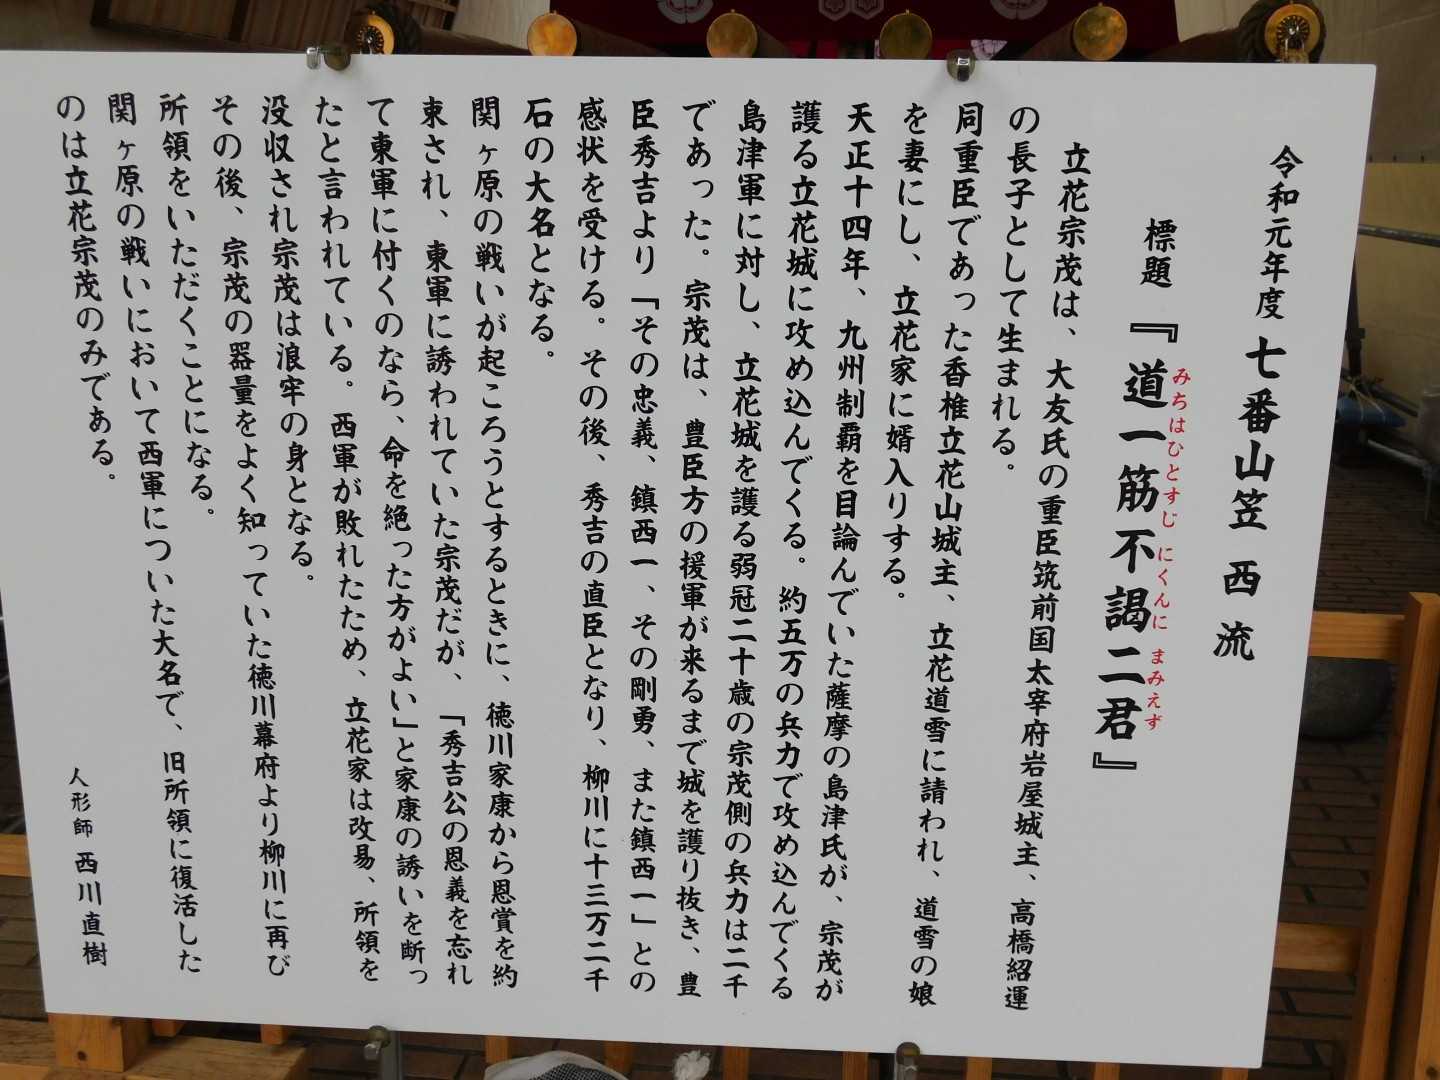 令和元年度 七番山笠 西流
標題 『道一筋不謁二君』
みちはひとすじ にくんに まみえず
立花宗茂は、大友氏の重臣筑前国太宰府岩屋城主、高橋紹運
の長子として生まれる。
同重臣であった香椎立花山城主、立花道雪に請われ、道雪の娘
を妻にし、立花家に婿入りする。
天正十四年、九州制覇を目論んでいた薩摩の島津氏が、宗茂が
護る立花城に攻め込んでくる。約五万の兵力で攻め込んでくる
島津軍に対し、立花城を護る弱冠二十歳の宗茂側の兵力は二千
であった。宗茂は、豊臣方の援軍が来るまで城を護り抜き、豊
臣秀吉より「その忠義、鎮西一、その剛勇、また鎮西一」との
感状を受ける。その後、秀吉の直臣となり、柳川に十三万二千
石の大名となる。
関ヶ原の戦いが起ころうとするときに、徳川家康から恩賞を約
束され、東軍に誘われていた宗茂だが、「秀吉公の恩義を忘れ
て東軍に付くのなら、命を絶った方がよい」と家康の誘いを断っ
たと言われている。西軍が敗れたため、立花家は改易、所領を
没収され宗茂は浪牢の身となる。
その後、宗茂の器量をよく知っていた徳川幕府より柳川に再び
所領をいただくことになる。
関ヶ原の戦いにおいて西軍についた大名で、旧所領に復活した
のは立花宗茂のみである。
人形師 西川直樹